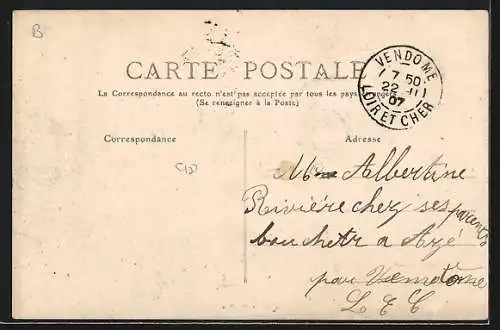 B
CARTE POSTALE
La Correspondance au recto n'est pas acceptée par tous les pays
(Se renseigner à la Poste)
VENDOME
7 50
22 - 11
07
LOIR ET CHER
Correspondance
Adresse
Mme Albertine
Rivière chez ses parents
bouchetr a Azé
par Vendome
L E C